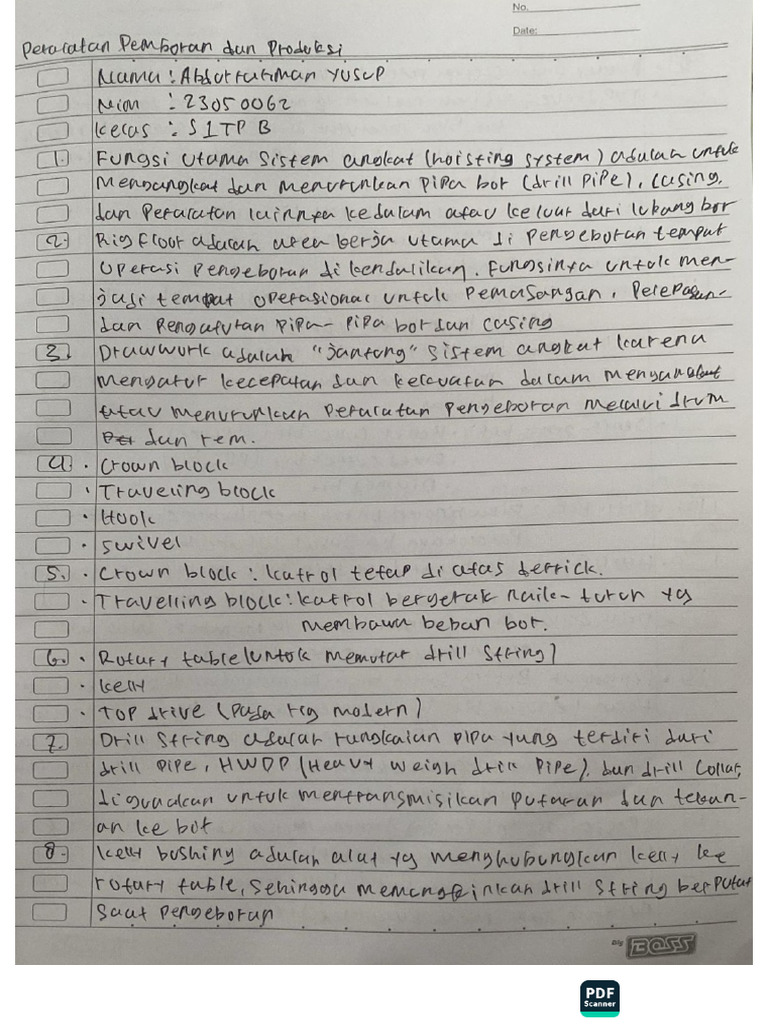 No.
Date:
Peralatan Pemboran dan Produksi
Nama : Abdurrahman Yusup
Nim : 23050062
Kelas : S1TP B
1. Fungsi utama sistem angkat (hoisting system) adalah untuk
Mengangkat dan menurunkan pipa bor (drill pipe), casing,
dan Peralatan lainnya kedalam atau keluar dari lubang bor
2. Rig floor adalah area kerja utama di pengeboran tempat
operasi pengeboran di kendalikan. Fungsinya untuk men-
jadi tempat operasional untuk pemasangan, Pelepasan-
dan Pengaturan pipa-pipa bor dan casing
3. Drawwork adalah "jantung" sistem angkat karena
mengatur kecepatan dan kekuatan dalam mengangkat
atau menurunkan Peralatan pengeboran melalui drum
dan rem.
4. • Crown block
• Traveling block
• Hook
• Swivel
5. • Crown block : katrol tetap di atas derrick.
• Travelling block : katrol bergerak naik-turun yg
membawa beban bor.
6. • Rotary table (untok memutar drill string)
• Kelly
• TOP drive (pada rig modern)
7. Drill string adalah rangkaian pipa yang terdiri dari
drill pipe, HWDP (Heavy weigh drill pipe), dan drill collar,
digunakan untuk mentransmisikan putaran dan tekan-
an ke bot
8. Kelly bushing adalah alat yg menghubungkan kelly ke
rotary table, sehingga memungkinkan drill string berputar
saat pengeboran
by BOSS
PDF
Scanner